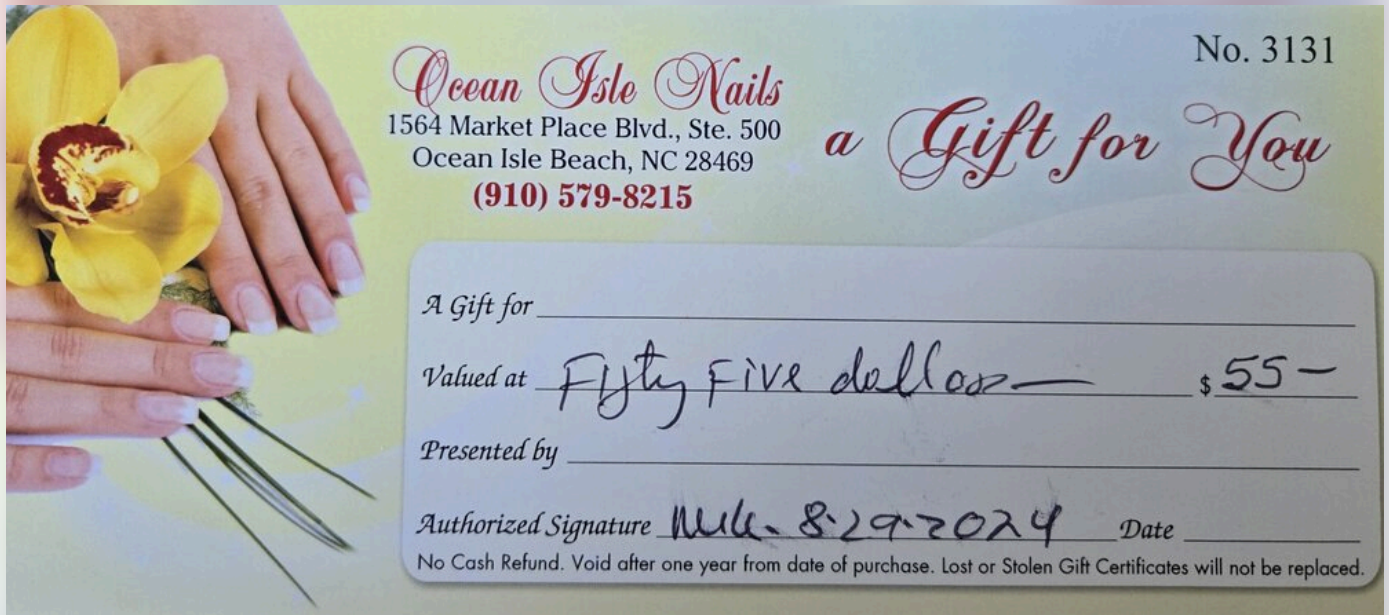 No. 3131
Ocean Isle Nails
1564 Market Place Blvd., Ste. 500
Ocean Isle Beach, NC 28469
(910) 579-8215
a Gift for You
A Gift for
Valued at Fifty Five dollars — $ 55 —
Presented by
Authorized Signature 8-29-2024 Date
No Cash Refund. Void after one year from date of purchase. Lost or Stolen Gift Certificates will not be replaced.